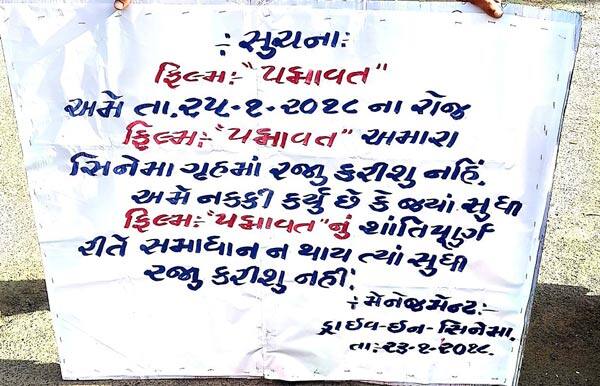 :સુચના:
ફિલ્મ:- "પદ્માવત"
અમે તા.૨૫-૧-૨૦૧૮ ના રોજ
ફિલ્મ:- "પદ્માવત" અમારા
સિનેમા ગૃહમાં રજુ કરીશુ નહિં.
અમે નક્કી કર્યુ છે કે જ્યાં સુધી
ફિલ્મ:- "પદ્માવત"નું શાંતિપૂર્ણ
રીતે સમાધાન ન થાય ત્યાં સુધી
રજુ કરીશુ નહીં.
:મેનેજમેન્ટ:-
ડ્રાઈવ-ઈન-સિનેમા.
તા:-૨૩-૧-૨૦૧૮.